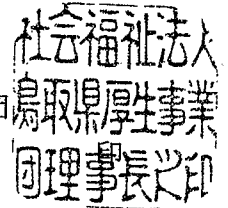 社会福祉法人
鳥取県厚生事業
団理事長之印